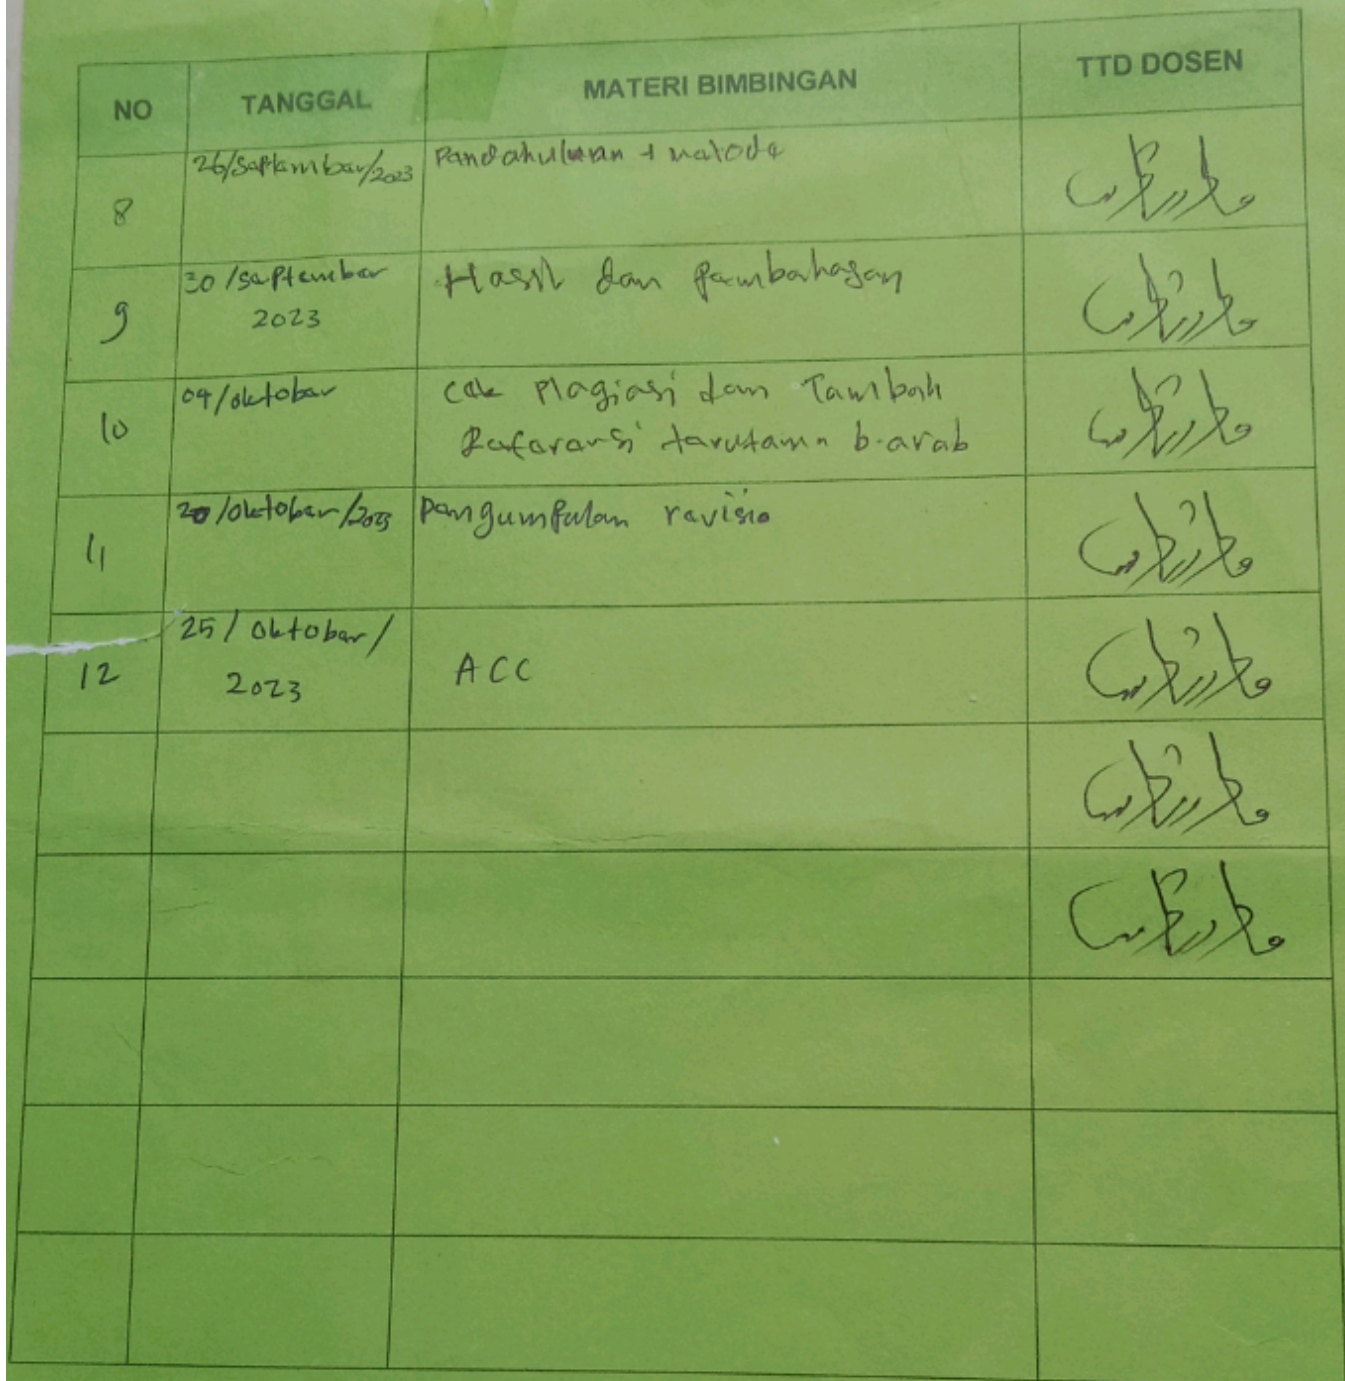 NO TANGGAL MATERI BIMBINGAN TTD DOSEN
8 26/September/2023 Pendahuluan + metode
9 30/September Hasil dan Pembahasan
2023
10 04/oktober cek Plagiasi dan Tambah
Referensi terutama b.arab
11 20/oktober/2023 Pengumpulan revisi
12 25/oktober/ ACC
2023